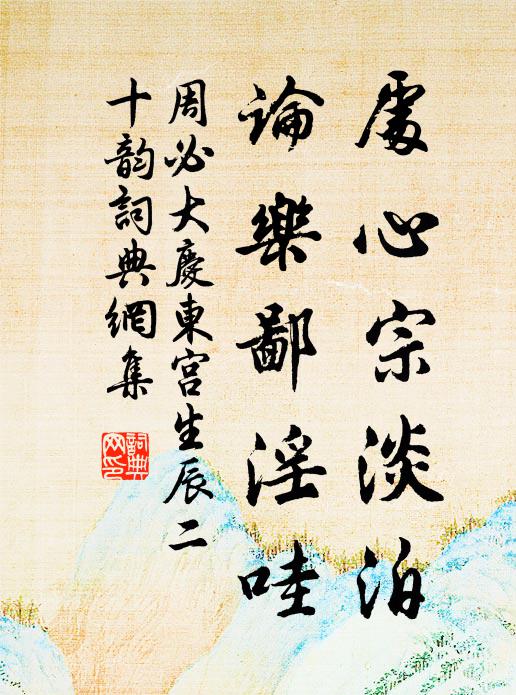 處心宗淡泊
論樂鄙淫哇
周必大慶東宮生辰二
十韵詞典網集
詞典
网印